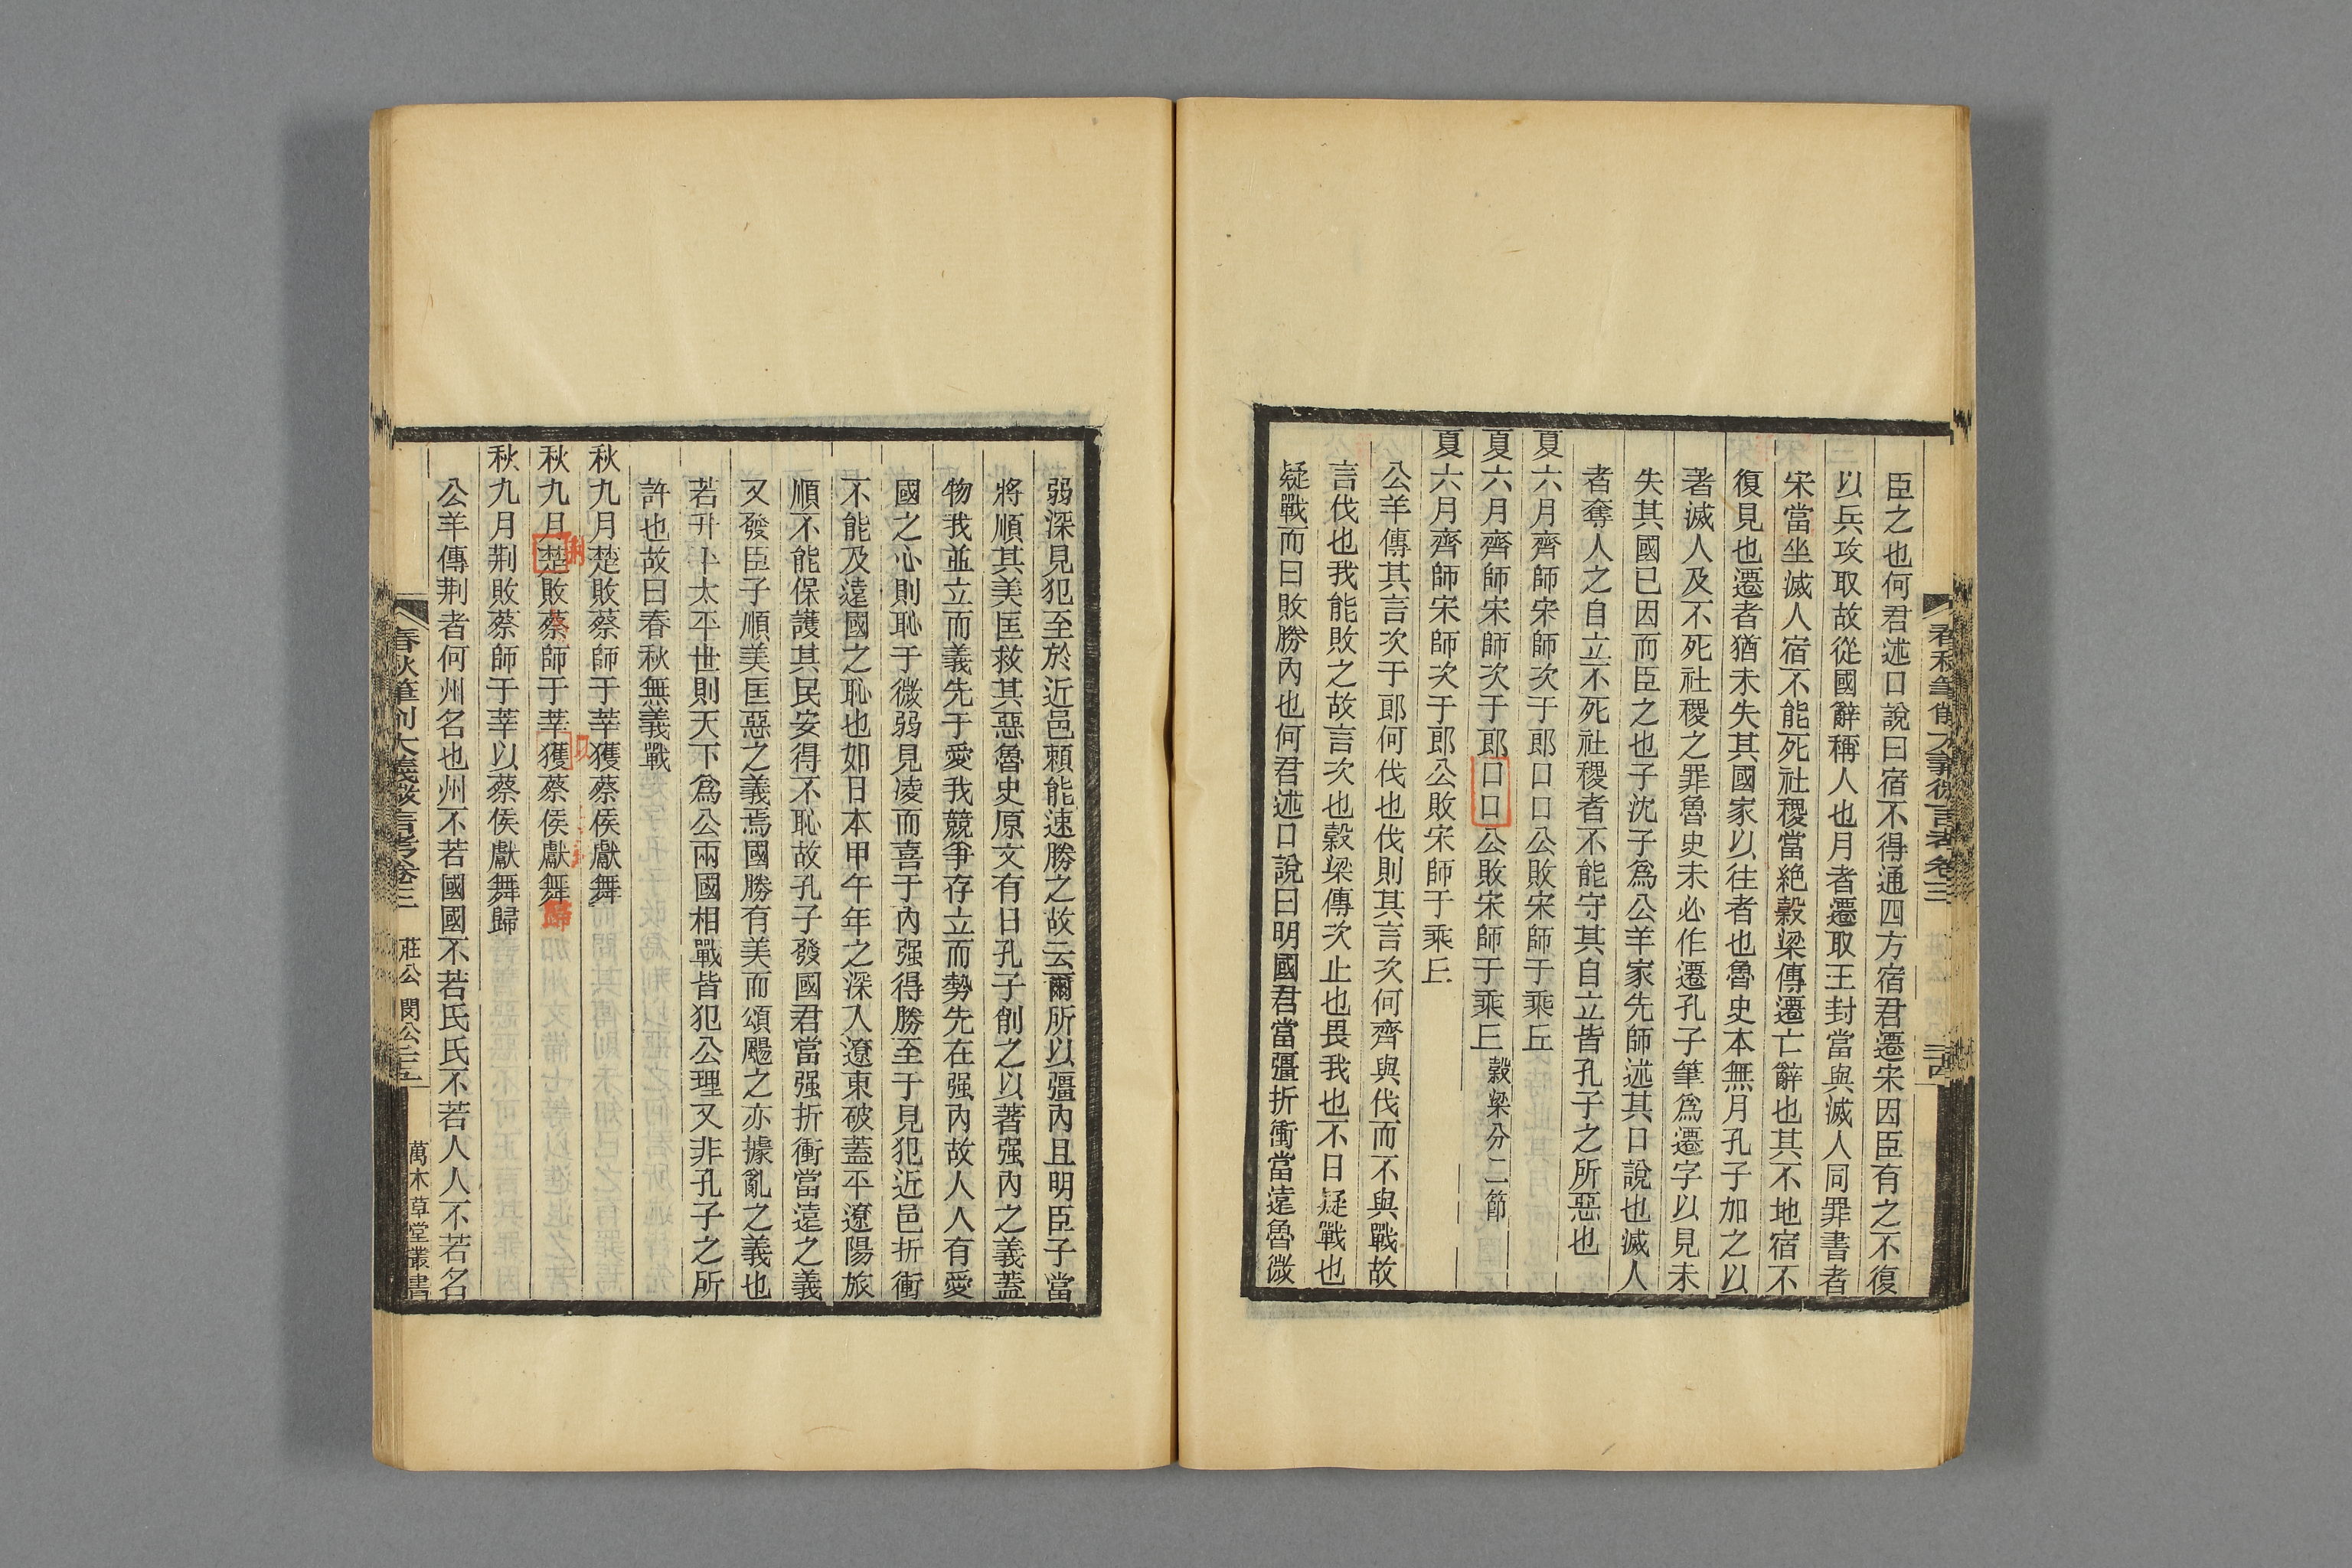 臣之也何君述口說曰宿不得通四方宿君遷宋因臣有之不復
以兵攻取故從國辭稱人也月者遷取王封當與滅人同罪書者
宋當坐滅人宿不能死社稷當絕穀梁傳遷亡辭也其不地宿不
復見也遷者猶未失其國家以往者也魯史本無月孔子加之以
著滅人及不死社稷之罪魯史未必作遷孔子筆爲遷字以見未
失其國已因而臣之也子沈子爲公羊家先師述其口說也滅人
者奪人之自立不死社稷者不能守其自立皆孔子之所惡也
夏六月齊師宋師次于郎口口公敗宋師于乘丘
夏六月齊師宋師次于郎口口公敗宋師于乘丘 穀梁分二節
夏六月齊師宋師次于郎公敗宋師于乘丘
公羊傳其言次于郎何伐也伐則其言次何齊與伐而不與戰故
言伐也我能敗之故言次也穀梁傳次止也畏我也不日疑戰也
疑戰而曰敗勝內也何君述口說曰明國君當彊折衝當遠魯微
春秋筆削大義微言考卷三
弱深見犯至於近邑賴能速勝之故云爾所以彊內且明臣子當
將順其美匡救其惡魯史原文有日孔子削之以著强內之義蓋
物我並立而義先于愛我競爭存立而勢先在强內故人人有愛
國之心則恥于微弱見凌而喜于內强得勝至于見犯近邑折衝
不能及遠國之恥也如日本甲午年之深入遼東破蓋平遼陽旅
順不能保護其民安得不恥故孔子發國君當强折衝當遠之義
又發臣子順美匡惡之義焉國勝有美而頌颺之亦據亂之義也
若升平太平世則天下爲公兩國相戰皆犯公理又非孔子之所
許也故曰春秋無義戰
秋九月楚敗蔡師于莘獲蔡侯獻舞
秋九月楚敗蔡師于莘獲蔡侯獻舞歸
秋九月荆敗蔡師于莘以蔡侯獻舞歸
公羊傳荆者何州名也州不若國國不若氏氏不若人人不若名
春秋筆削大義微言考卷三 莊公 閔公 萬木草堂叢書